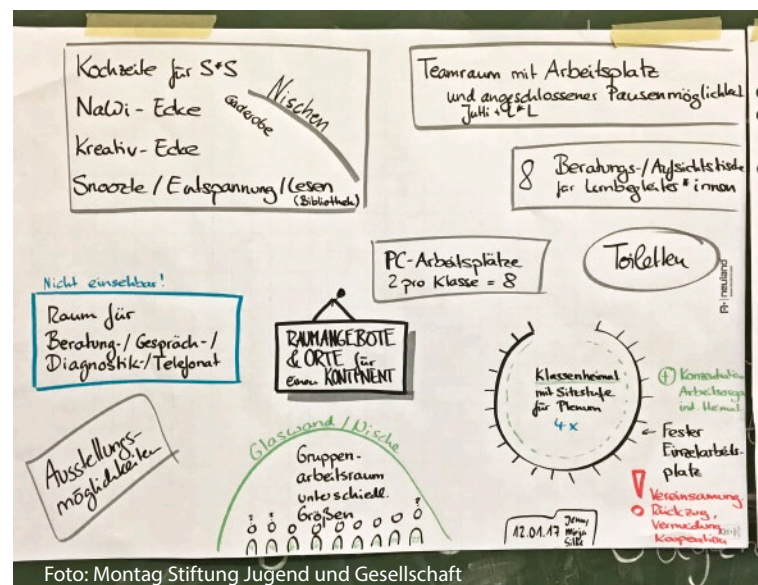 Kochzeile für S*S
NaWi-Ecke
Kreativ-Ecke
Snoozle/Entspannung/Lesen
(Bibliothek)
Garderobe
Nischen
Teamraum mit Arbeitsplatz
und angeschlossener Pausenmöglichkei
JuHi + L*L
8 Beratungs-/Aufsichtstische
für Lernbegleiter*innen
PC-Arbeitsplätze
2 pro Klasse = 8
Toiletten
neuland
Nicht einsehbar!
Raum für
Beratung-/Gespräch-/
Diagnostik-/Telefonat
RAUMANGEBOTE
& ORTE für
einen KONTINENT
Klassenheimat
mit Sitzstufe
für Plenum
4x
+ Konzentration
Arbeitsorga
ind. Heimat
← Fester
Einzelarbeits-
platz
! Vereinsamung
Rückzug,
Vermeidung
Kooperation
Ausstellungs-
möglichkeiten
Glaswand/Nische
Gruppen-
arbeitsraum
unterschiedl.
Größen
12.01.17
Jenny
Mirja
Silke
Foto: Montag Stiftung Jugend und Gesellschaft